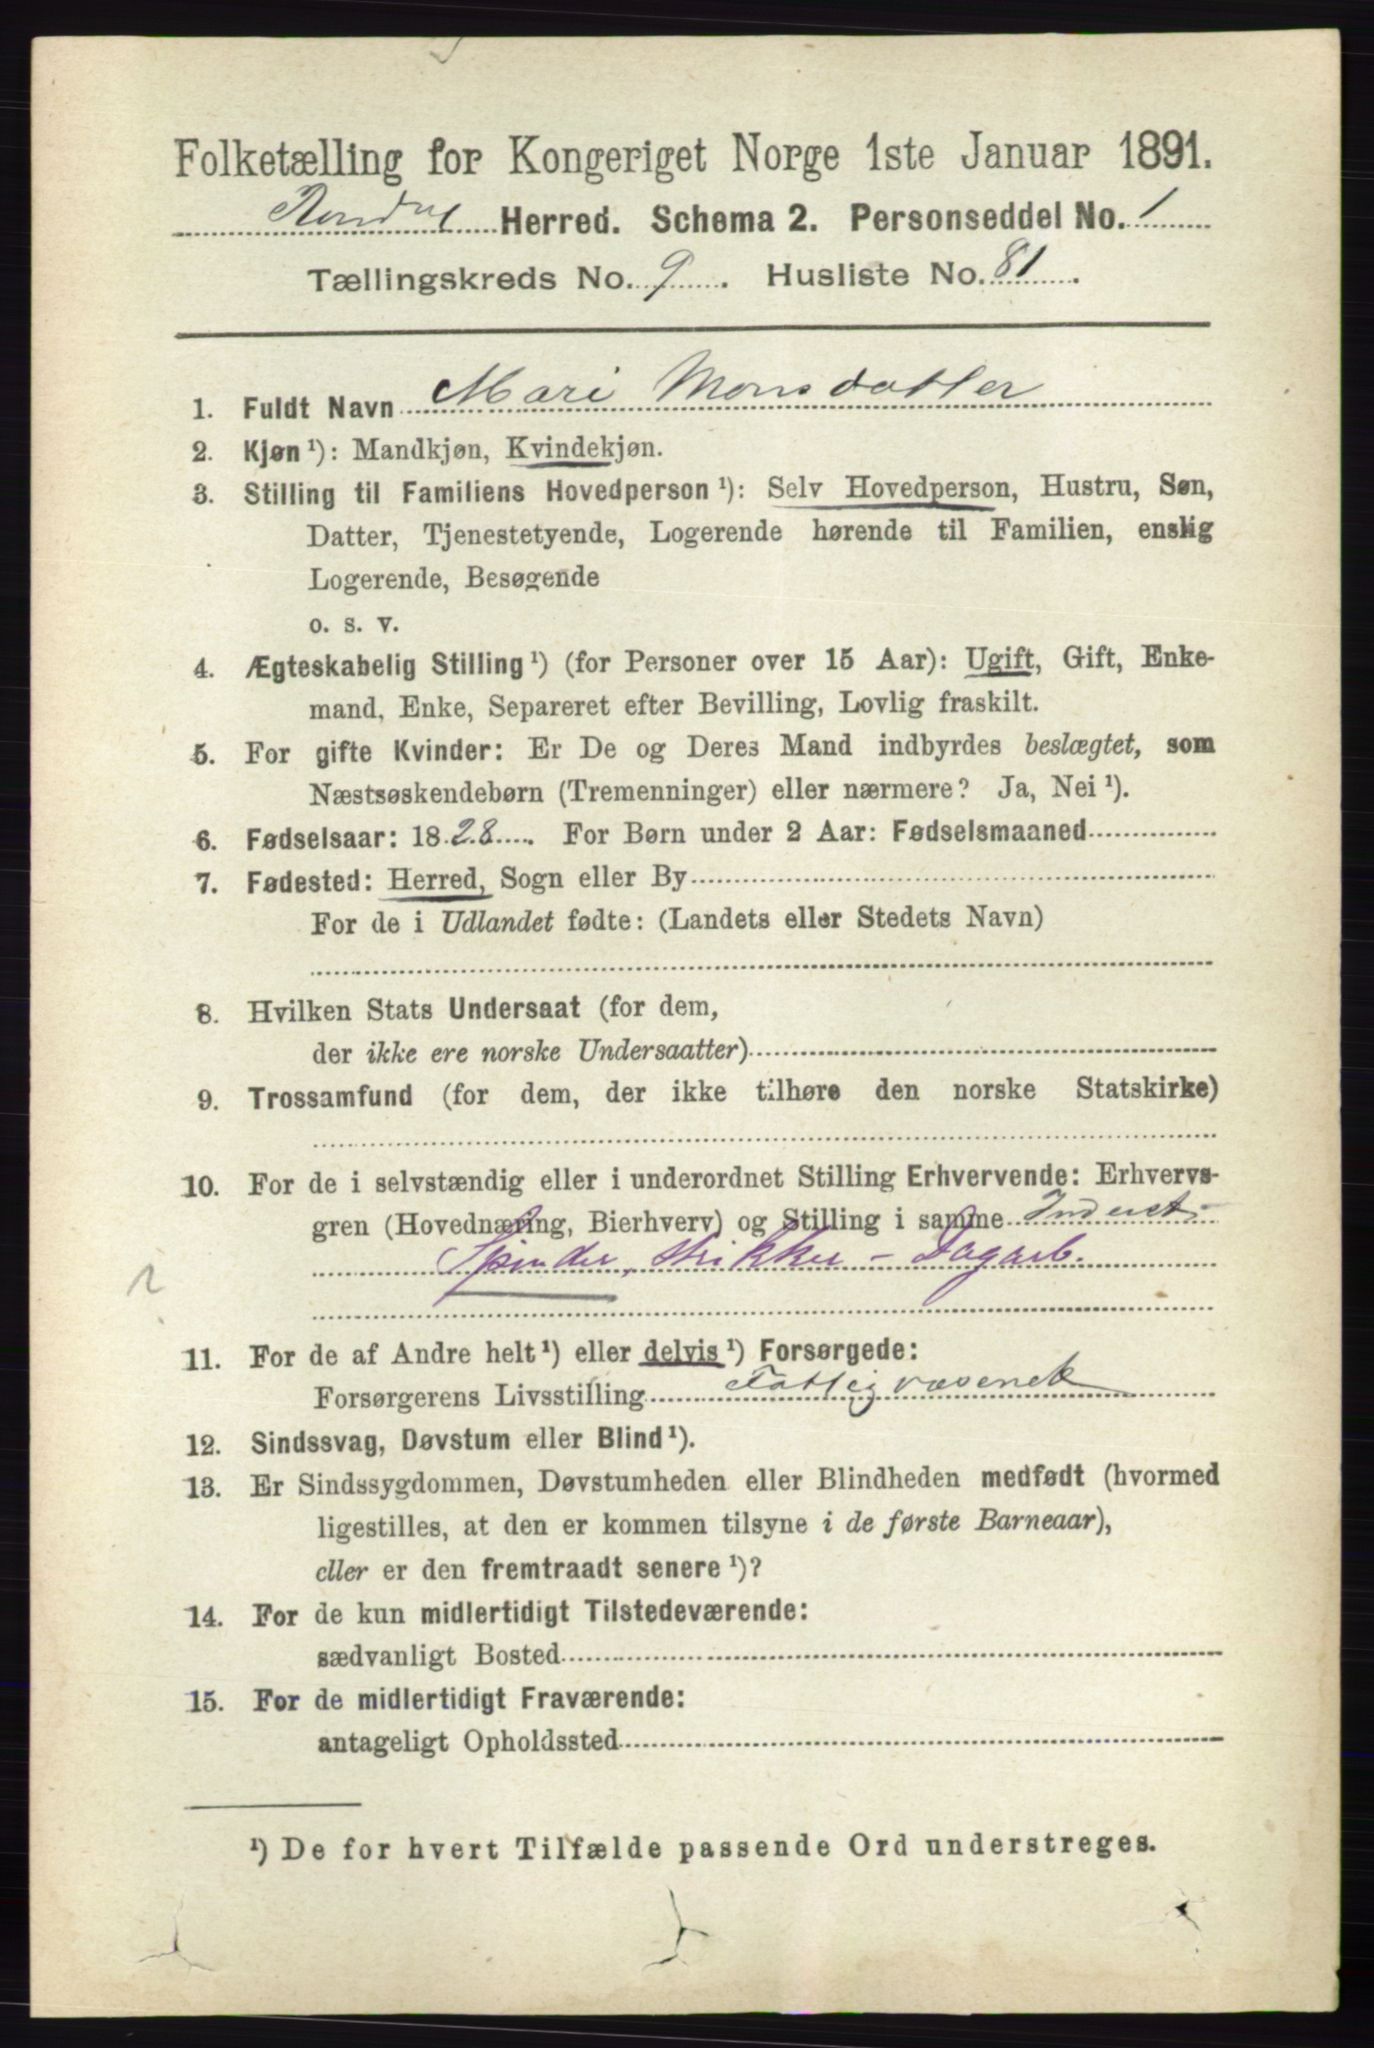 Folketælling for Kongeriget Norge 1ste Januar 1891.
Herred. Schema 2. Personseddel No. 1
Tællingskreds No. 9. Husliste No. 81.
1. Fuldt Navn Mari Monsdatter
2. Kjøn ¹): Mandkjøn, Kvindekjøn.
3. Stilling til Familiens Hovedperson ¹): Selv Hovedperson, Hustru, Søn,
Datter, Tjenestetyende, Logerende hørende til Familien, enslig
Logerende, Besøgende
o. s. v.
4. Ægteskabelig Stilling ¹) (for Personer over 15 Aar): Ugift, Gift, Enke-
mand, Enke, Separeret efter Bevilling, Lovlig fraskilt.
5. For gifte Kvinder: Er De og Deres Mand indbyrdes beslægtet, som
Næstsøskendebørn (Tremenninger) eller nærmere? Ja, Nei ¹).
6. Fødselsaar: 1828. For Børn under 2 Aar: Fødselsmaaned
7. Fødested: Herred, Sogn eller By
For de i Udlandet fødte: (Landets eller Stedets Navn)
8. Hvilken Stats Undersaat (for dem,
der ikke ere norske Undersaatter)
9. Trossamfund (for dem, der ikke tilhøre den norske Statskirke)
10. For de i selvstændig eller i underordnet Stilling Erhvervende: Erhvervs-
gren (Hovednæring, Bierhverv) og Stilling i samme Inderst-
Spinder, strikker - Dagarb.
11. For de af Andre helt ¹) eller delvis ¹) Forsørgede:
Forsørgerens Livsstilling Fattigvæsenet
12. Sindssvag, Døvstum eller Blind ¹).
13. Er Sindssygdommen, Døvstumheden eller Blindheden medfødt (hvormed
ligestilles, at den er kommen tilsyne i de første Barneaar),
eller er den fremtraadt senere ¹)?
14. For de kun midlertidigt Tilstedeværende:
sædvanligt Bosted
15. For de midlertidigt Fraværende:
antageligt Opholdssted
¹) De for hvert Tilfælde passende Ord understreges.